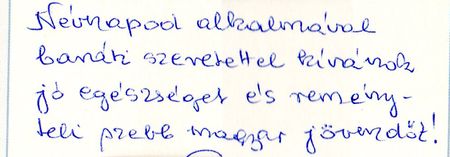 Névnapod alkalmával
baráti szeretettel kívánok
jó egészséget és remény-
teli szebb magyar jövendőt!